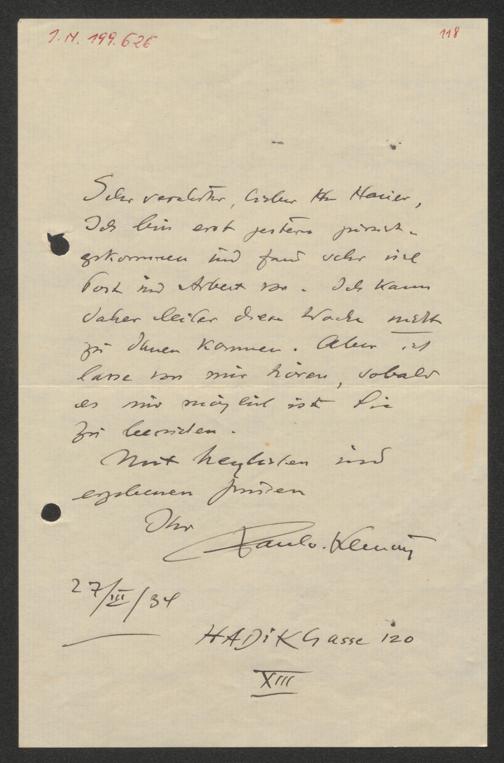 J.N. 199.626
118
Sehr verehrter, lieber Hr Hauer,
Ich bin erst gestern zurück-
gekommen und fand sehr viel
Post und Arbeit vor. Ich kann
daher leider diese Woche nicht
zu Ihnen kommen. Aber ich
lasse von mir hören, sobald
es mir möglich ist Sie
zu besuchen.
Mit herzlichsten und
ergebenen Grüssen
Ihr
27/III/34
HADiKGasse 120
XIII